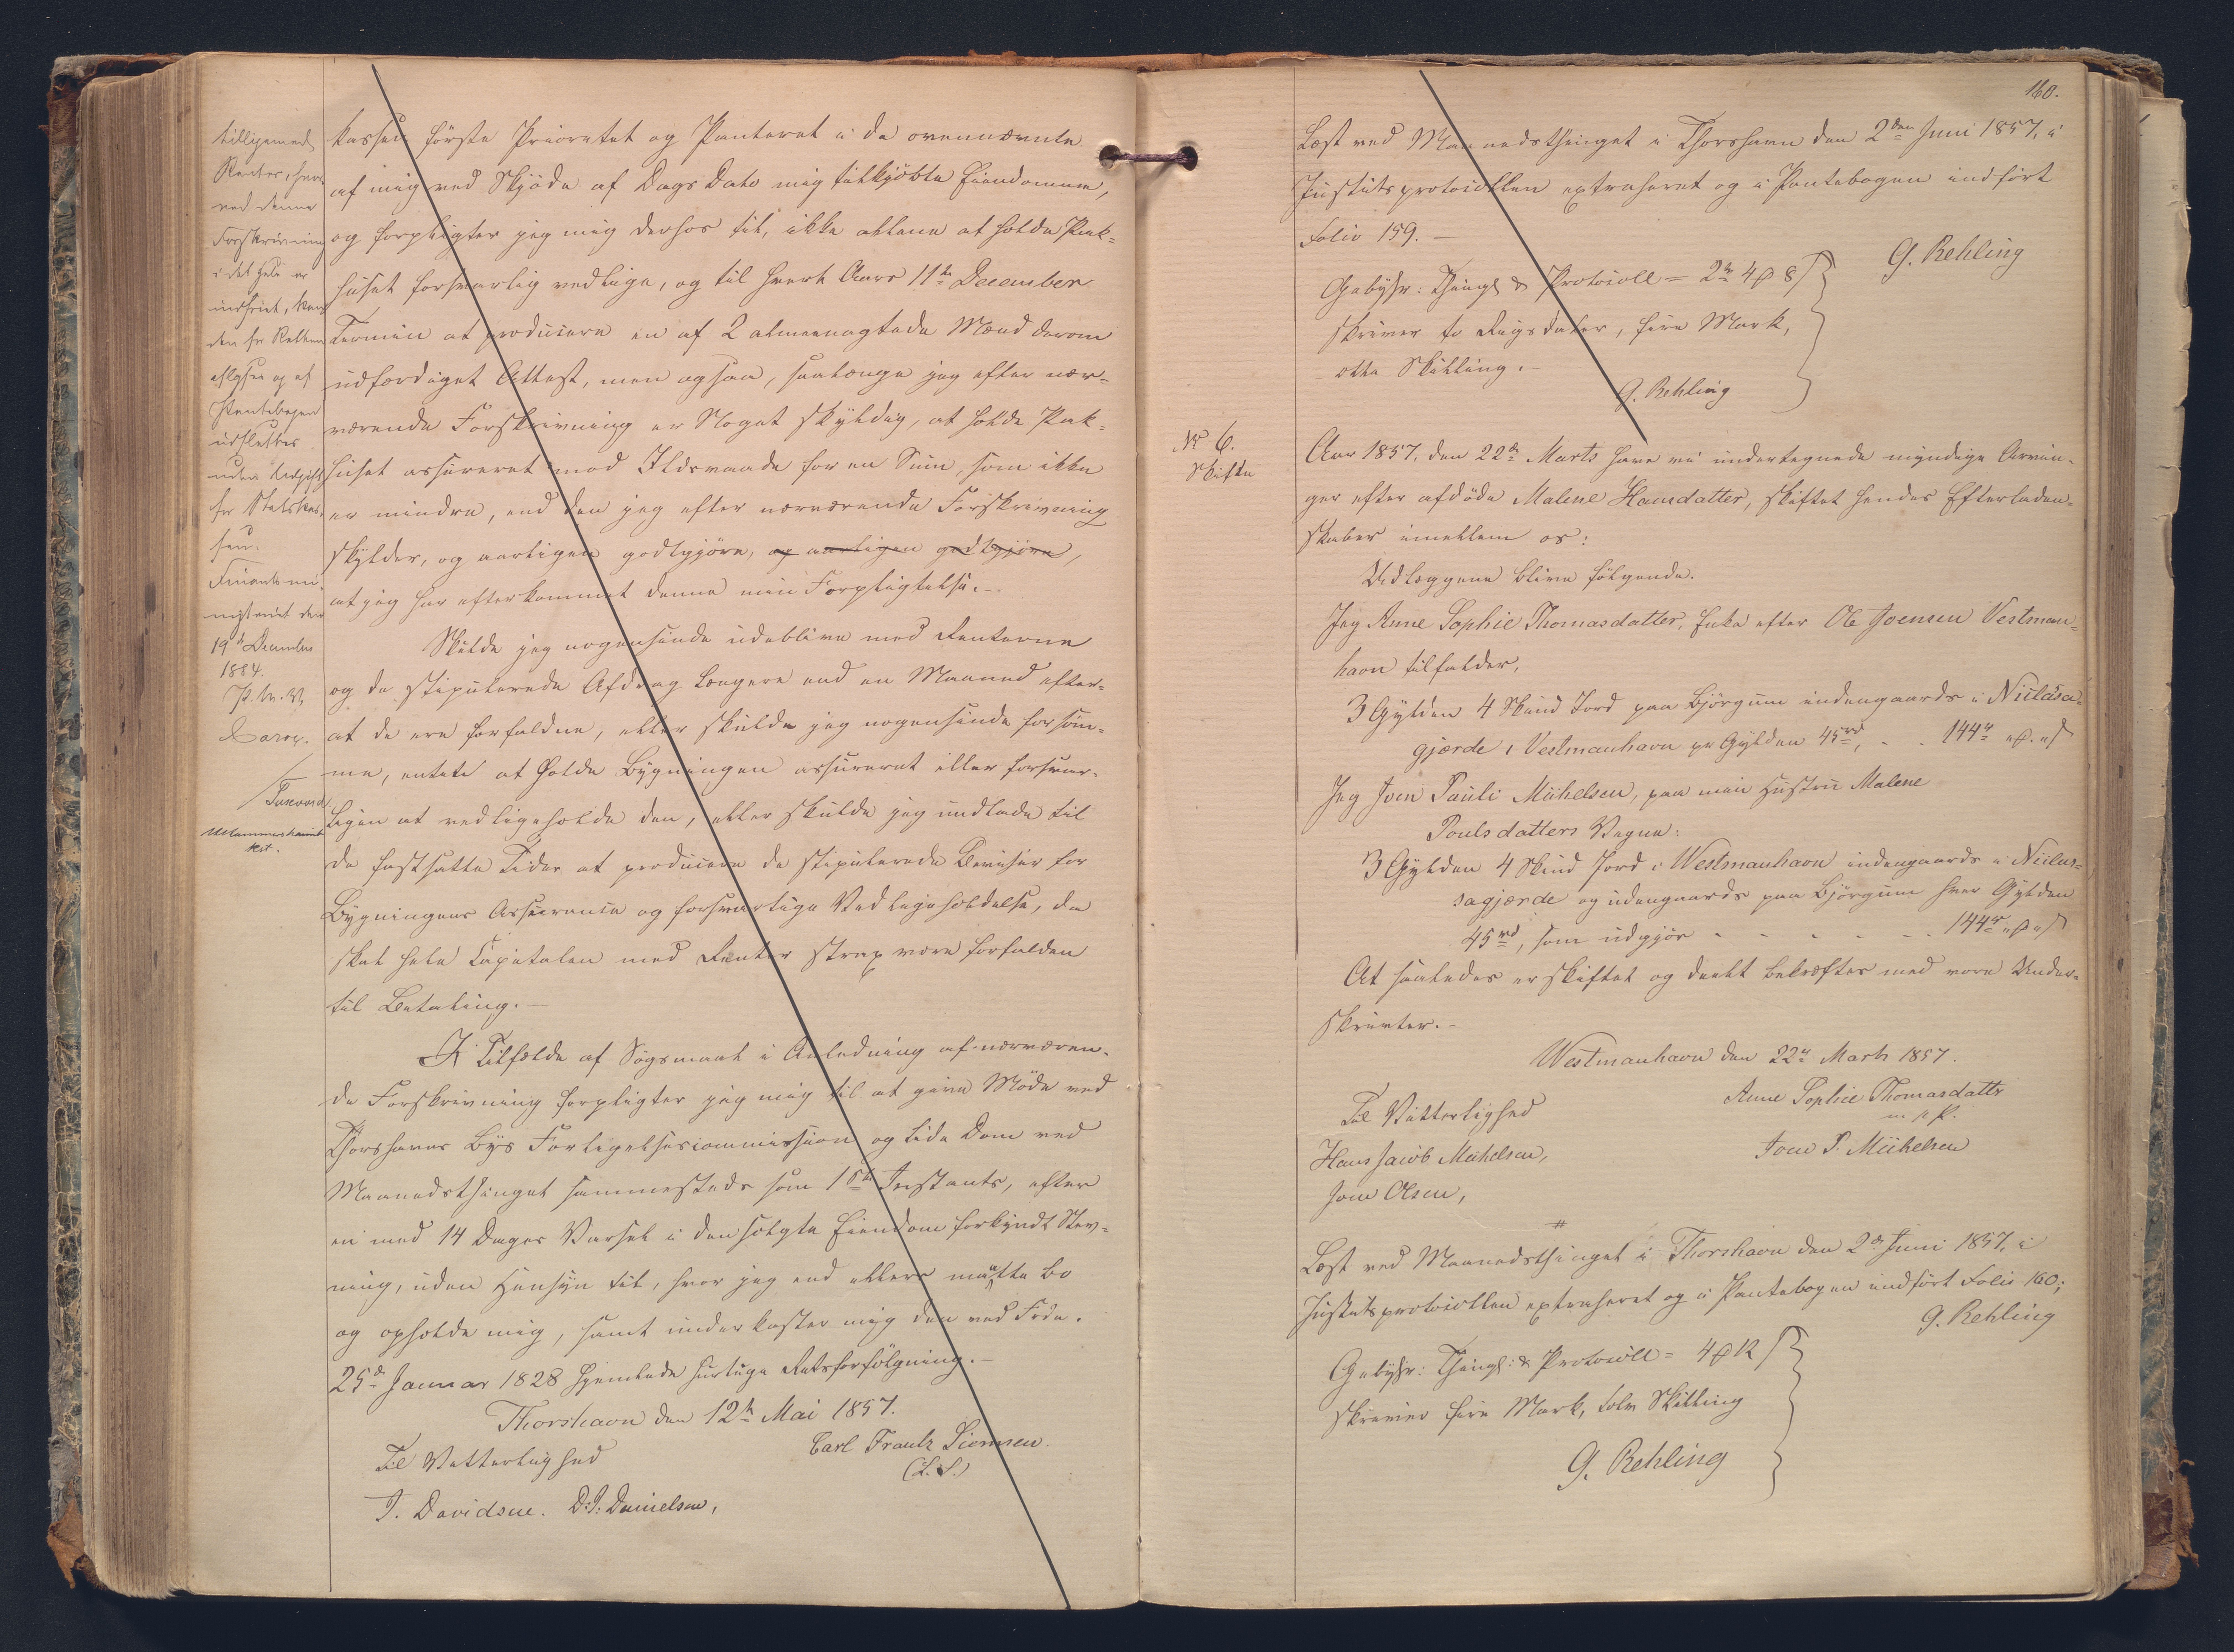 tilligemed
Renter, hvor-
ved denne
Forskrivning
i det Hele er
indfriet, kan
den for Retten
aflyses og af
Pantebogen
udslettes
uden Udgift
for Statskas-
sen.
Finantsmi-
nisteriet den
19de December
1884.
P. M. V.
kassen første Prioritet og Panteret i de ovennævnte
af mig ved Skjøde af Dags Dato mig tilkjøbte Eiendomme,
og forpligter jeg mig derhos til, ikke allene at holde Pak-
huset forsvarlig vedlige, og til hvert Aars 11te December
Termin at producere en af 2 almeenagtede Mænd derom
udfærdiget Attest, men ogsaa, saalænge jeg efter nær-
værende Forskrivning er Noget skyldig, at holde Pak-
huset assureret mod Ildsvaade for en Sum, som ikke
er mindre, end den jeg efter nærværende Forskrivning
skylder, og aarligen godtgjøre, og aarligen godtgjøre,
at jeg har efterkommet denne min Forpligtelse.-
Skulde jeg nogensinde udeblive med Renterne
og de stipulerede Afdrag længere end en Maaned efter-
at de ere forfaldne, eller skulde jeg nogensinde forsøm-
me, enten at holde Bygningen assureret eller forsvar-
ligen at vedligeholde den, eller skulde jeg undlade til
de fastsatte Tider at producere de stipulerede Beviser for
Bygningens Assurance og forsvarlige Vedligeholdelse, da
skal hele Capitalen med Renter strax være forfalden
til Betaling.-
I Tilfælde af Søgsmaal i Anledning af nærværen-
de Forskrivning forpligter jeg mig til at give Møde ved
Thorshavns Byes Forligelsescommission og lide Dom ved
Maanedsthinget sammesteds som 1ste Instants, efter
en med 14 Dages Varsel i den solgte Eiendom forkyndt Stev-
ning, uden Hensyn til, hvor jeg end ellers maatte bo
og opholde mig, samt underkaster mig den ved Frdn.
25de Januar 1828 hjemlede hurtige Retsforfølgning.-
Thorshavn den 12te Mai 1857.
Til Vitterlighed
Carl Frantz Siemsen.
(L.S.)
J. Davidsen. D. J. Danielsen,
160.
Læst ved Maanedsthinget i Thorshavn den 2den Juni 1857, i
Justitsprotocollen extraheret og i Pantebogen indført
Folio 159.-
G. Rehling
Gebyhr: Thingl. & Protocoll = 2rd 4 8
skriver to Rigsdaler, fire Mark,
otte Skilling.-
G. Rehling
No 6.
Skifte
Aar 1857, den 22de Marts have vi undertegnede myndige Arvin-
ger efter afdøde Malene Hansdatter, skiftet hendes Efterladen-
skaber imellem os:
Udlæggene blive følgende.
Jeg Anne Sophie Thomasdatter, Enke efter Ole Joensen Vestman-
havn tilfalder,
3 Gylden 4 Skind Jord paa Bjørgum indengaards i Niclasa-
gjærde i Vestmanhavn pr Gylden 45rd, - - 144rd
Jeg Joen Pauli Michelsen, paa min Hustru Malene
Poulsdatters Vegne:
3 Gylden 4 Skind Jord i Westmanhavn indengaards i Niclas-
sagjærde og udengaards paa Bjørgum hver Gylden
45rd, som udgjør - - - - - 144rd
At saaledes er skiftet og deelt bekræftes med vore Under-
skrivter.-
Westmanhavn den 22de Marts 1857.
Til Vitterlighed
Anne Sophie Thomasdatter
m. f. P.
Hans Jacob Michelsen,
Joen P. Michelsen
Joen Olsen,
Læst ved Maanedsthinget i Thorshavn den 2den Juni 1857, i
Justitsprotocollen extraheret og i Pantebogen indført Folio 160;
G. Rehling
Gebyhr: Thingl: & Protocoll = 4 12
skriver fire Mark, tolv Skilling
G. Rehling